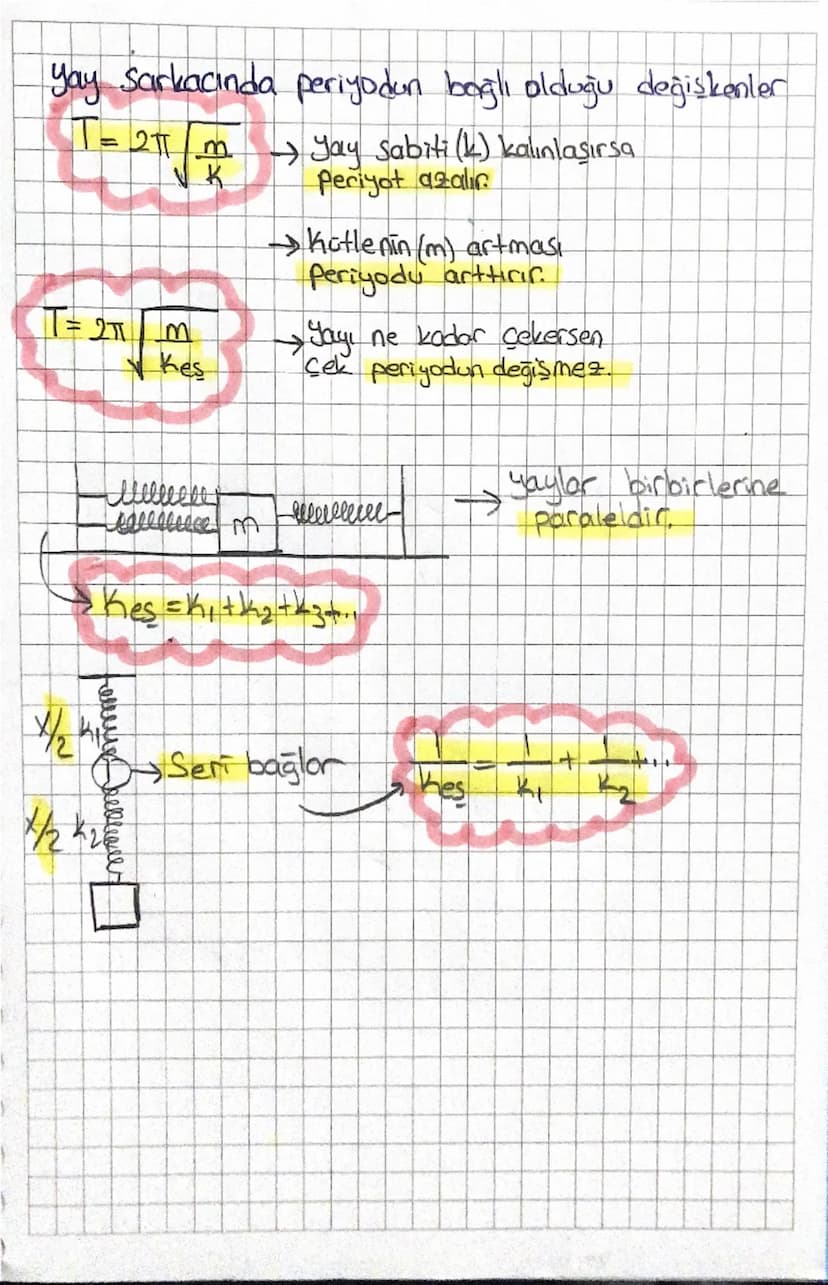 Yay sarkacında periyodun bağlı olduğu değişkenler
T = 2π √m/k → Yay sabiti (k) kalınlaşırsa
periyot azalır.
→ Kütlenin (m) artması
periyodu arttırır.
T = 2π √m/keş → Yayı ne kadar çekersen
çek periyodun değişmez.
m → yaylar birbirlerine
paraleldir.
keş = k₁ + k₂ + k₃ + ...
x/2 k₁
→ Seri bağlar
1/keş = 1/k₁ + 1/k₂ + ...
x/2 k₂